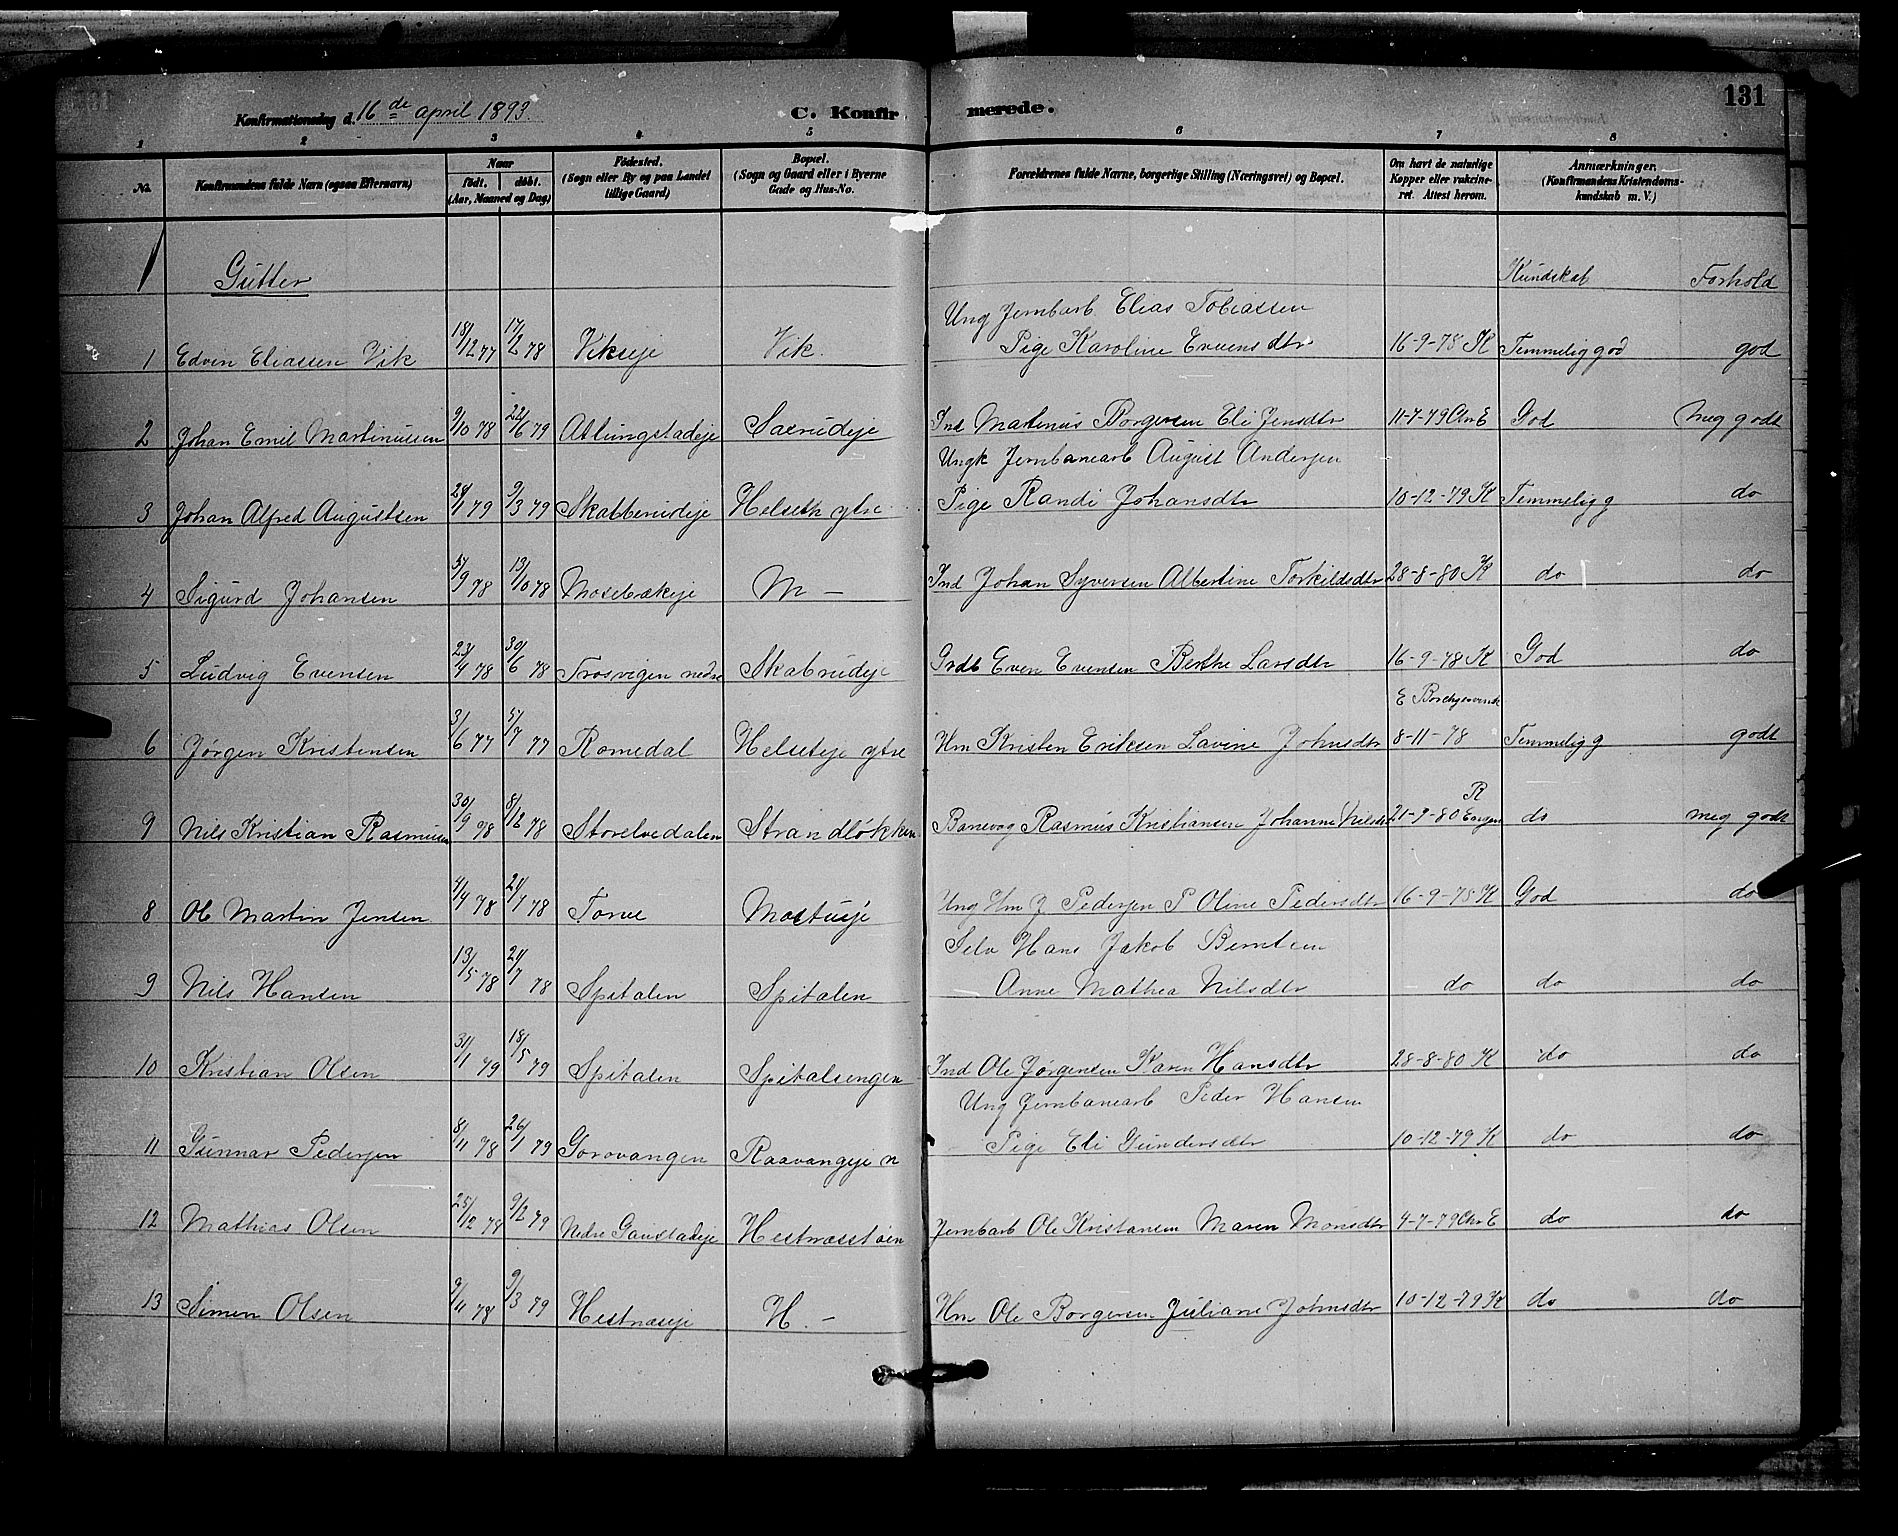 131
Konfirmationsdag d. 16de april 1893. C. Konfirmerede.
1 2 3 4 5 6 7 8
No. Konfirmandens fulde Navn (ogsaa Efternavn) Naar født. døbt. (Aar, Maaned og Dag) Fødested. (Sogn eller By og paa Landet tillige Gaard) Bopæl. (Sogn og Gaard eller i Byerne Gade og Hus-No. Forældrenes fulde Navne, borgerlige Stilling (Næringsvei) og Bopæl. Om havt de naturlige Kopper eller vakcineret. Attest herom. Anmærkninger. (Konfirmandens Kristendomskundskab m. V.)
Gutter Kundskab Forhold
Ung Jernbarb. Elias Tobiassen
1 Edvin Eliassen Vik 18/12 77 17/2 78 Vikseje Vik. Pige Karoline Evensdtr 16-9-78 K Temmelig god god
2 Johan Emil Martinussen 9/10 78 22/6 79 Atlungstadeje Saxrudeje Ind Martinus Borgersen Eli Jensdtr 11-7-79 Chr E God meg godt
Ungk Jernbanearb August Andersen
3 Johan Alfred Augustsen 24/1 79 9/3 79 Skabberudeje Helseth ytre Pige Randi Johansdtr 10-12-79 K Temmelig g do
4 Sigurd Johansen 5/9 78 13/10 78 Mosebækeje M - Ind Johan Syversen Albertine Torkildsdtr 28-8-80 K do do
5 Ludvig Evensen 23/4 78 30/6 78 Trosvigen nedre Skabrudeje Grdb Even Evensen Berthe Larsdtr 16-9-78 K God do
E
6 Jørgen Kristensen 3/6 77 5/7 77 Romedal Helseteje ytre Hm Kristen Eriksen Lavine Johnsdtr 8-11-78 Temmelig g godt
R
9 Nils Kristian Rasmussen 30/9 78 8/12 78 Storelvedalen Strandløkken Banevog Rasmus Kristiansen Johanne Nilsdtr 21-9-80 do meg godt
8 Ole Martin Jensen 4/4 78 24/1 78 Torve Mostueje Ung Hm J Pedersen P Oline Pedersdtr 16-9-78 K God do
Selv Hans Jakob Berntsen
9 Nils Hansen 13/5 78 24/7 78 Spitalen Spitalen Anne Mathea Nilsdtr do do do
10 Kristian Olsen 31/1 79 18/5 79 Spitalen Spitalsengen Ind Ole Jørgensen Karen Hansdtr 28-8-80 K do do
Ung Jernbanearb Peder Hansen
11 Gunnar Pedersen 8/11 78 26/1 79 Gorovangen Raavangeje n Pige Eli Gundersdtr 10-12-79 K do do
12 Mathias Olsen 25/12 78 9/2 79 Nedre Gaustadeje Hestnæsstøen Jernbarb Ole Kristiansen Maren Monsdtr 4-7-79 Chr E do do
13 Simen Olsen 9/11 78 9/3 79 Hestnæseje H. - Hm Ole Borgersen Juliane Johnsdtr 10-12-79 K do do